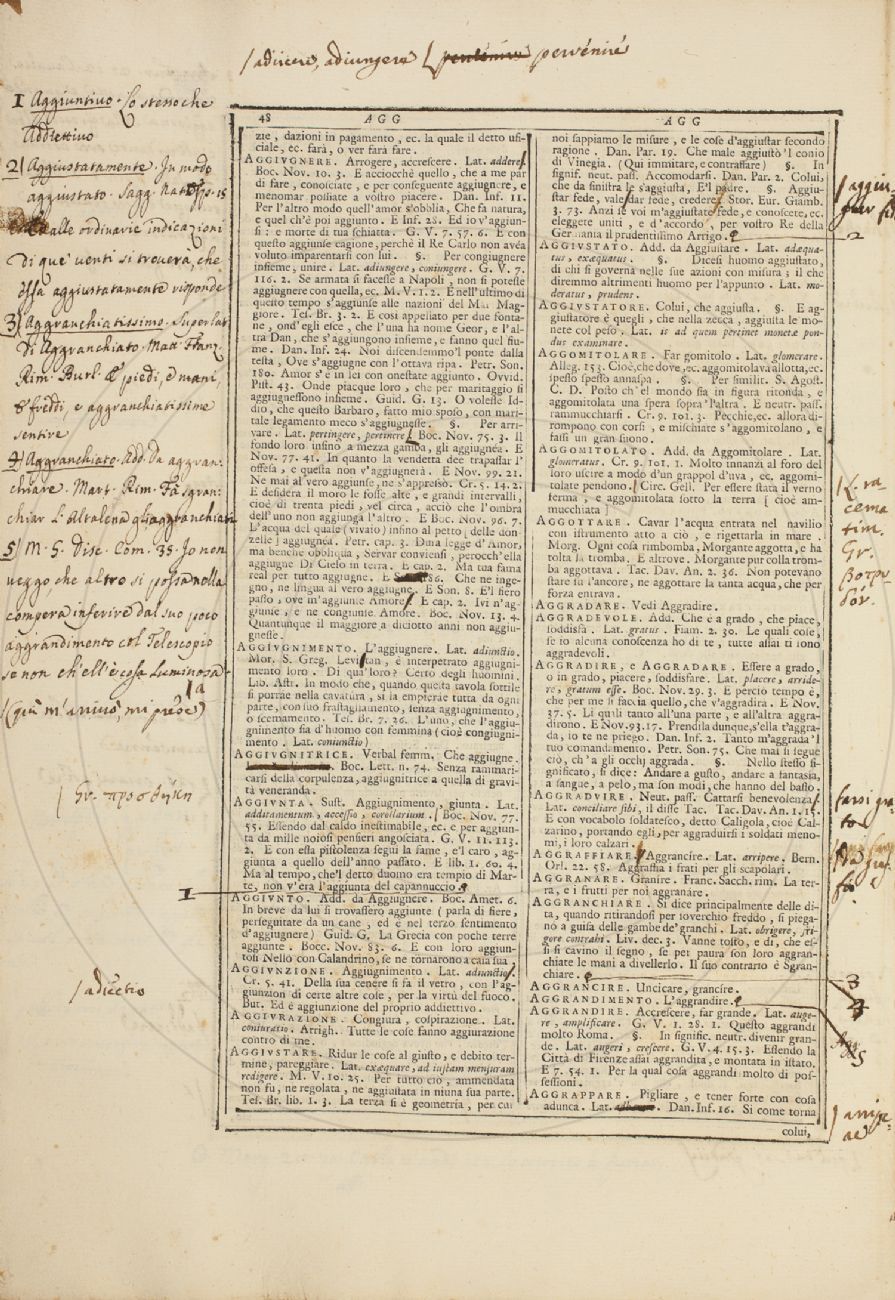 /adiicere, adiungere / pervenire
1 Aggiuntivo. Lo stesso che
Addiettivo
2/ Aggiustatamente. In modo
aggiustato. Sagg. Nat.
alle ordinarie indicazioni
di que' venti si troverà, che
essa aggiustatamente risponde
3/ Aggranchiatissimo. Superlat.
di Aggranchiato. Matt. Franz.
Rim. Burl. E piedi, e mani,
e freddi, e aggranchiatissime
sentire
4/ Aggranchiato. Add. da aggran-
chiare. Mart. Rim. Fa sgran-
chiar l'Altalena gli aggranchiati
5/ M. S. Disc. Com. 35. Io non
veggo, che altro si possa nella
compera inferire dal suo poco
aggrandimento col Telescopio
se non ch'ell'è cosa luminosa
/a
(più m'anius, mi piace)
/ Gr. προσθήκη
1
/adiectio
48 AGG
zie, dazioni in pagamento, ec. la quale il detto ufi-
ciale, ec. farà, o ver farà fare.
AGGIVGNERE. Arrogere, accrescere. Lat. addere.
Boc. Nov. 10. 3. E acciocchè quello, che a me par
di fare, conosciate, e per conseguente aggiugnere, e
menomar possiate a vostro piacere. Dan. Inf. 11.
Per l'altro modo quell'amor s'obblia, Che fa natura,
e quel ch'è poi aggiunto. E Inf. 28. Ed io v'aggiun-
si: e morte di tua schiatta. G. V. 7. 57. 6. E con
questo aggiunse cagione, perchè il Re Carlo non avéa
voluto imparentarsi con lui. §. Per congiugnere
insieme, unire. Lat. adiungere, coniungere. G. V. 7.
116. 2. Se armata si facesse a Napoli, non si potesse
aggiugnere con quella, ec. M. V. 1. 2. E nell'ultimo di
questo tempo s'aggiunse alle nazioni del Mar Mag-
giore. Tes. Br. 3. 2. E così appellato per due fonta-
ne, ond'egli esce, che l'una ha nome Geor, e l'al-
tra Dan, che s'aggiungono insieme, e fanno quel fiu-
me. Dan. Inf. 24. Noi discendemmo'l ponte dalla
testa, Ove s'aggiugne con l'ottava ripa. Petr. Son.
180. Amor s'è in lei con onestate aggiunto. Ovvid.
Pist. 43. Onde piacque loro, che per maritaggio si
aggiugnessono insieme. Guid. G. 13. O volesse Id-
dio, che questo Barbaro, fatto mio sposo, con mari-
tale legamento meco s'aggiugnesse. §. Per arri-
vare. Lat. pertingere, pertinere. Boc. Nov. 75. 3. Il
fondo loro infino a mezza gamba, gli aggiugnéa. E
Nov. 77. 41. In quanto la vendetta dee trapassar l'
offesa, e questa non v'aggiugnerà. E Nov. 99. 21.
Ne mai al vero aggiunse, ne s'appressò. Cr. 5. 14. 2.
E desidera il moro le fosse alte, e grandi intervalli,
cioè di trenta piedi, vel circa, acciò che l'ombra
dell'uno non aggiunga l'altro. E Boc. Nov. 96. 7.
L'acqua del quale (vivaio) infino al petto [delle don-
zelle] aggiugnéa. Petr. cap. 3. Dura legge d'Amor,
ma benchè obbliqua, Servar conviensi, perocch'ella
aggiugne Di Cielo in terra. E cap. 2. Ma tua fama
real per tutto aggiugne. E 86. Che ne inge-
gno, ne lingua al vero aggiugne. E Son. 8. E'l fiero
passo, ove m'aggiunse Amore. E cap. 2. Ivi n'ag-
giunse, e ne congiunse Amore. Boc. Nov. 13. 4.
Quantunque il maggiore a diciotto anni non aggiu-
gnesse.
AGGIVGNIMENTO. L'aggiugnere. Lat. adiunctio.
Mor. S. Greg. Levitan, è interpetrato aggiugni-
mento loro. Di qua' loro? Certo degli huomini.
Lib. Astr. In modo che, quando questa tavola sottile
si porrae nella cavatura, si la empierae tutta da ogni
parte, con suo frastagliamento, senza aggiugnimento,
o scemamento. Tes. Br. 7. 26. L'uno, che l'aggiu-
gnimento sia d'huomo con femmina (cioè congiugni-
mento. Lat. coniunctio)
AGGIVGNITRICE. Verbal femm. Che aggiugne.
Boc. Lett. n. 74. Senza rammari-
carsi della corpulenza, aggiugnitrice a quella di gravi-
tà veneranda.
AGGIVNTA. Sust. Aggiugnimento, giunta. Lat.
additamentum, accessio, corollarium. / Boc. Nov. 77.
55. Essendo dal caldo inestimabile, ec. e per aggiun-
ta da mille noiosi pensieri angosciata. G. V. 11. 113.
2. E con essa pistolenza seguì la fame, e'l caro, ag-
giunta a quello dell'anno passato. E lib. 1. 60. 4.
Ma al tempo, che'l detto duomo era tempio di Mar-
te, non v'era l'aggiunta del capannuccio.
AGGIVNTO. Add. da Aggiugnere. Boc. Amet. 6.
In breve da lui si trovassero aggiunte (parla di fiere,
perseguitate da un cane, ed è nel terzo sentimento
d'aggiugnere) Guid. G. La Grecia con poche terre
aggiunte. Bocc. Nov. 83. 6. E con loro aggiun-
tosi Nello con Calandrino, se ne tornarono a casa sua.
AGGIVNZIONE. Aggiugnimento. Lat. adiunctio.
Cr. 5. 41. Della sua cenere si fa il vetro, con l'ag-
giunzion di certe altre cose, per la virtù del fuoco.
But. Ed è aggiunzione del proprio addiettivo.
AGGIVRAZIONE. Congiura, cospirazione. Lat.
coniuratio. Arrigh. Tutte le cose fanno aggiurazione
contro di me.
AGGIVSTARE. Ridur le cose al giusto, e debito ter-
mine, pareggiare. Lat. exæquare, ad iustam mensuram
redigere. M. V. 10. 25. Per tutto ciò, ammendata
non fu, ne regolata, ne aggiustata in niuna sua parte.
Tes. Br. lib. 1. 3. La terza si è geometria, per cui
AGG
noi sappiamo le misure, e le cose d'aggiustar secondo
ragione. Dan. Par. 19. Che male aggiustò'l conio
di Vinegia. (Qui immitare, e contraffare) §. In
signif. neut. pass. Accomodarsi. Dan. Par. 2. Colui,
che da sinistra le s'aggiusta, E'l padre. §. Aggiu-
star fede, vale dar fede, credere. Stor. Eur. Giamb.
3. 73. Anzi se voi m'aggiustate fede, e conoscete, ec.
eleggete uniti, e d'accordo, per vostro Re della
Germania il prudentissimo Arrigo.
AGGIVSTATO. Add. da Aggiustare. Lat. adæqua-
tus, exæquatus. §. Dicesi huomo aggiustato,
di chi si governa nelle sue azioni con misura; il che
diremmo altrimenti huomo per l'appunto. Lat. mo-
deratus, prudens.
AGGIVSTATORE. Colui, che aggiusta. §. E ag-
giustatore è quegli, che nella zecca, aggiusta le mo-
nete col peso. Lat. is ad quem pertinet monetæ pon-
dus examinare.
AGGOMITOLARE. Far gomitolo. Lat. glomerare.
Alleg. 153. Cioè, che dove, ec. aggomitolava allotta, ec.
spesso spesso annaspa. §. Per similit. S. Agost.
C. D. Posto ch'el mondo sia in figura ritonda, e
aggomitolata una spera sopra l'altra. E neutr. pass.
rammucchiarsi. Cr. 9. 101. 3. Pecchie, ec. allora di-
rompono con corsi, e mischiate s'aggomitolano, e
fassi un gran suono.
AGGOMITOLATO. Add. da Aggomitolare. Lat.
glomeratus. Cr. 9. 101. 1. Molto innanzi al foro del
loro uscire a modo d'un grappol d'uva, ec. aggomi-
tolate pendono. / Circ. Gell. Per essere stata il verno
ferma, e aggomitolata sotto la terra [cioè am-
mucchiata]
AGGOTTARE. Cavar l'acqua entrata nel navilio
con istrumento atto a ciò, e rigettarla in mare.
Morg. Ogni cosa rimbomba, Morgante aggotta, e ha
tolta la tromba. E altrove. Morgante pur colla trom-
ba aggottava. Tac. Dav. An. 2. 36. Non potevano
stare su l'ancore, ne aggottare la tanta acqua, che per
forza entrava.
AGGRADARE. Vedi Aggradire.
AGGRADEVOLE. Add. Che è a grado, che piace,
soddisfà. Lat. gratus. Fiam. 2. 30. Le quali cose,
se io alcuna conoscenza ho di te, tutte assai ti sono
aggradevoli.
AGGRADIRE, e AGGRADARE. Essere a grado,
o in grado, piacere, soddisfare. Lat. placere, arride-
re, gratum esse. Boc. Nov. 29. 3. E perciò tempo è,
che per me si faccia quello, che v'aggradirà. E Nov.
37. 5. Li quali tanto all'una parte, e all'altra aggra-
dirono. E Nov. 93. 17. Prendila dunque, s'ella t'aggra-
da, io te ne priego. Dan. Inf. 2. Tanto m'aggrada'l
tuo comandamento. Petr. Son. 75. Che mai si segue
ciò, ch'a gli occhi aggrada. §. Nello stesso si-
gnificato, si dice: Andare a gusto, andare a fantasia,
a sangue, a pelo, ma son modi, che hanno del basso.
AGGRADVIRE. Neut. pass. Cattarsi benevolenza.
Lat. conciliare sibi, il disse Tac. Tac. Dav. An. 1. 15.
E con vocabolo soldatesco, detto Caligola, cioè Cal-
zarino, portando egli, per aggraduirsi i soldati meno-
mi, i loro calzari.
AGGRAFFIARE. Aggrancire. Lat. arripere. Bern.
Orl. 22. 58. Aggraffia i frati per gli scapolari.
AGGRANARE. Granire. Franc. Sacch. rim. La ter-
ra, e i frutti per noi aggranare.
AGGRANCHIARE. Si dice principalmente delle di-
ta, quando ritirandosi per soverchio freddo, si piega-
no a guisa delle gambe de' granchi. Lat. obrigere, fri-
gore contrahi. Liv. dec. 3. Vanne tosto, e di, che es-
si si cavino il segno, se per paura son loro aggran-
chiate le mani a divellerlo. Il suo contrario è Sgran-
chiare.
AGGRANCIRE. Uncicare, grancire.
AGGRANDIMENTO. L'aggrandire.
AGGRANDIRE. Accrescere, far grande. Lat. auge-
re, amplificare. G. V. 1. 28. 1. Questo aggrandì
molto Roma. §. In signific. neutr. divenir gran-
de. Lat. augeri, crescere. G. V. 4. 15. 3. Essendo la
Città di Firenze assai aggrandita, e montata in istato.
E 7. 54. 1. Per la qual cosa aggrandì molto di pos-
sessioni.
AGGRAPPARE. Pigliare, e tener forte con cosa
adunca. Lat. Dan. Inf. 16. Sì come torna
colui,
/aggiu-
star fed
2
/ race-
matim.
Gr.
βοτρυ-
δόν.
farsi gra-
to
3
4
5
/arripe-
re